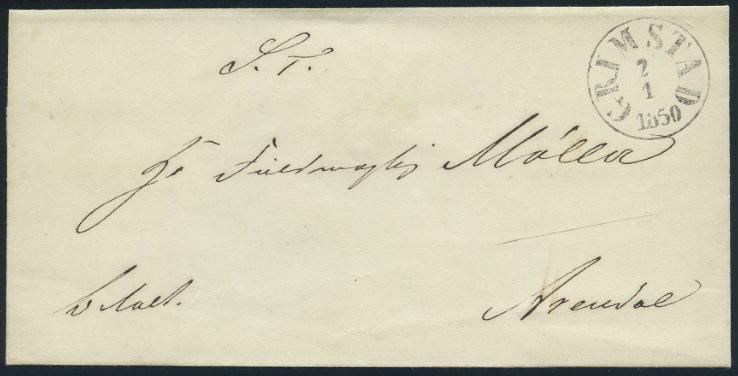 S. T.
GRIMSTAD
2
1
1850
Hr Fuldmægtig Møller
betalt.
Arendal